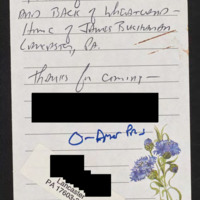 AND BACK of WHEATLAND –
Home of James Buchanan
Lancaster, PA.
Thanks for coming –
Lancaster
PA 17603